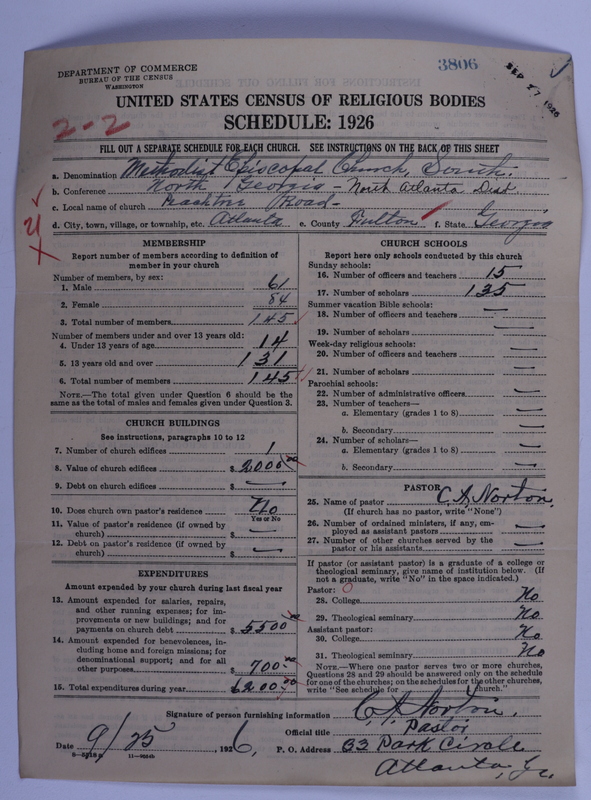 3806
SEP 27 1926
DEPARTMENT OF COMMERCE
BUREAU OF THE CENSUS
WASHINGTON
UNITED STATES CENSUS OF RELIGIOUS BODIES
SCHEDULE: 1926
2-2
FILL OUT A SEPARATE SCHEDULE FOR EACH CHURCH. SEE INSTRUCTIONS ON THE BACK OF THIS SHEET
a. Denomination Methodist Episcopal Church, South.
b. Conference North Georgia - North Atlanta Dist
c. Local name of church Road-
d. City, town, village, or township, etc. Atlanta e. County Fulton f. State Georgia
MEMBERSHIP
Report number of members according to definition of
member in your church
Number of members, by sex:
1. Male 61
2. Female 84
3. Total number of members 145
Number of members under and over 13 years old:
4. Under 13 years of age 14
5. 13 years old and over 131
6. Total number of members 145
NOTE.—The total given under Question 6 should be the
same as the total of males and females given under Question 3.
CHURCH BUILDINGS
See instructions, paragraphs 10 to 12
7. Number of church edifices 1
8. Value of church edifices $ 2000.00
9. Debt on church edifices $ —
10. Does church own pastor's residence? No
Yes or No
11. Value of pastor's residence (if owned by
church) $ —
12. Debt on pastor's residence (if owned by
church) $ —
EXPENDITURES
Amount expended by church during last fiscal year
13. Amount expended for salaries, repairs,
and other running expenses; for im-
provements or new buildings; and for
payments on church debt $ 5500.00
14. Amount expended for benevolences, in-
cluding home and foreign missions; for
denominational support; and for all
other purposes $ 700.00
15. Total expenditures during year 6200.00
CHURCH SCHOOLS
Report here only schools conducted by this church
Sunday schools:
16. Number of officers and teachers 15
17. Number of scholars 135
Summer vacation Bible schools:
18. Number of officers and teachers —
19. Number of scholars —
Week-day religious schools:
20. Number of officers and teachers —
21. Number of scholars —
Parochial schools:
22. Number of administrative officers —
23. Number of teachers—
a. Elementary (grades 1 to 8) —
b. Secondary —
24. Number of scholars—
a. Elementary (grades 1 to 8) —
b. Secondary —
PASTOR
25. Name of pastor C. A. Norton,
(If church has no pastor, write "None")
26. Number of ordained ministers, if any, em-
ployed as assistant pastors —
27. Number of other churches served by the
pastor or his assistants —
If pastor (or assistant pastor) is a graduate of a college or
theological seminary, give name of institution below. (If
not a graduate, write "No" in the space indicated.)
Pastor:
28. College No
29. Theological seminary No
Assistant pastor:
30. College No
31. Theological seminary No
NOTE.—Where one pastor serves two or more churches,
Questions 28 and 29 should be answered only on the schedule
for one of the churches; on the schedules for the other churches,
write "See schedule for church."
Signature of person furnishing information C. A. Norton.
Official title Pastor
Date 9/25, 1926, P. O. Address 33 Park Circle
Atlanta, Ga.